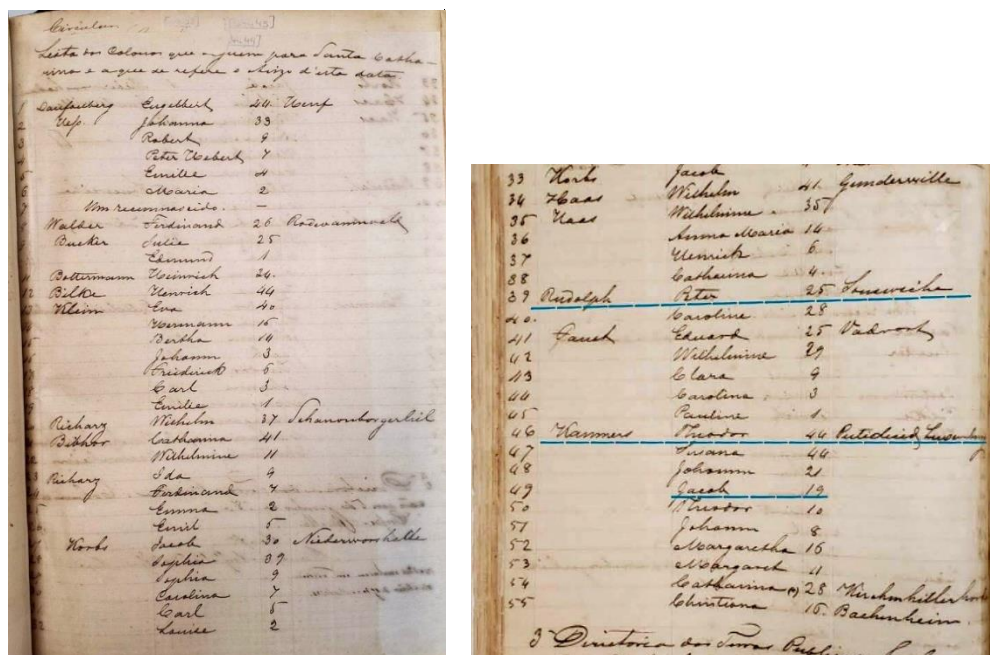 Circular
Lista dos Colonos que seguem para Santa Catha-
rina e a que se refere o Aviso d'esta data
1 Engelbert 44
2 Johanna 33
3 Robert 9
4 Peter 7
5 Emilie 4
6 Maria 2
7 Um recemnascido. -
Walber Ferdinand 26
Becker Julia 25
Edmund 1
Bottermann Heinrich 24.
12 Bilke Henrich 44
Klein Eva 40
Hermann 15
Bertha 14
Johann 3
Friedrich 5
Carl 3
Emilie 1
Richarz Wilhelm 37
Catharina 41
Wilhelmine 11
Richarz Ida 9
Ferdinand 7
Emma 2
Emil 5
Korbs Jacob 30
Sophia 39
Sophia 9
Carolina 7
Carl 5
Louise 2
33 Korbs Jacob
34 Haas Wilhelm 41. Gunderville
35 Haas Wilhelmine. 35
36 Anna Maria 14
37 Henrich 6
38 Catharina 4.
39 Rudolph Peter 25
40. Caroline 28
41 Faust Eduard 25
42 Wilhelmine 29
43 Clara 9
44 Carolina 3
45 Pauline 1
46 Kammers Theodor 44
47 Susana 44
48 Johann 21
49 Jacob 19
50 Theodor 10
51 Johann 8
52 Margaretha 16
53 Margaret 11
54 Catharina 28
55 Christiana 16. Bachenheim.
3ª Directoria das Terras Publicas